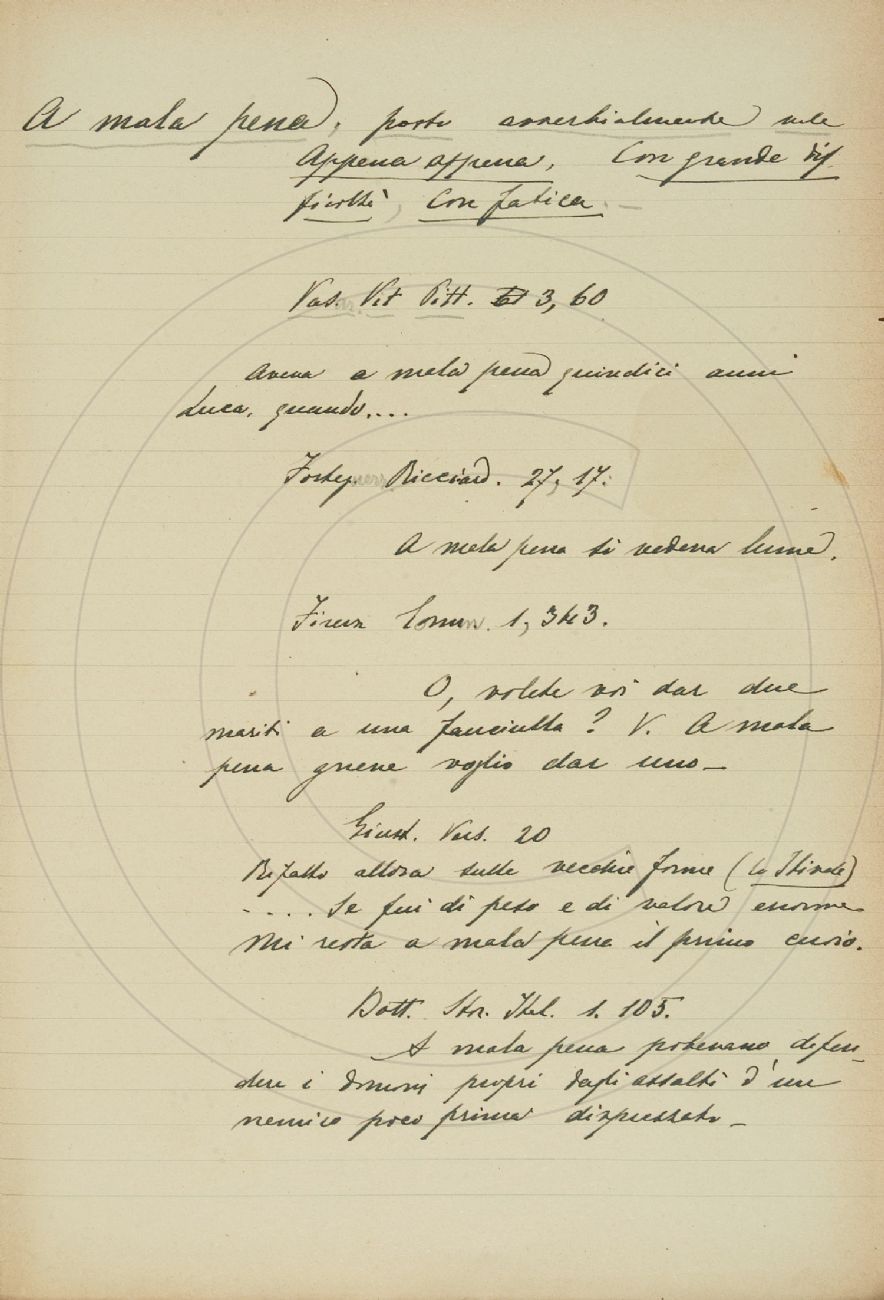 A mala pena, posto avverbialmente vale
Appena appena, Con grande dif-
ficoltà, Con fatica. —
Vas. Vit Pitt. 3, 60
Aveva a mala pena quindici anni
Luca, quando....
Forteg. Ricciard. 27, 17:
A mala pena si vedeva lume.
Firenz Comm. 1, 343.
O, volete voi dar due
mariti a una fanciulla? V. A mala
pena gnene voglio dar uno —
Giust. Vers. 20
Rifatto allora sulle vecchie forme (lo Stivale)
.... Se fui di peso e di valore enorme
Mi resta a mala pena il primo cuoio.
Bott. Stor. Ital. 1. 105.
A mala pena potevano difen-
dere i dominj proprj dagli assalti d'un
nemico poco prima disprezzato —